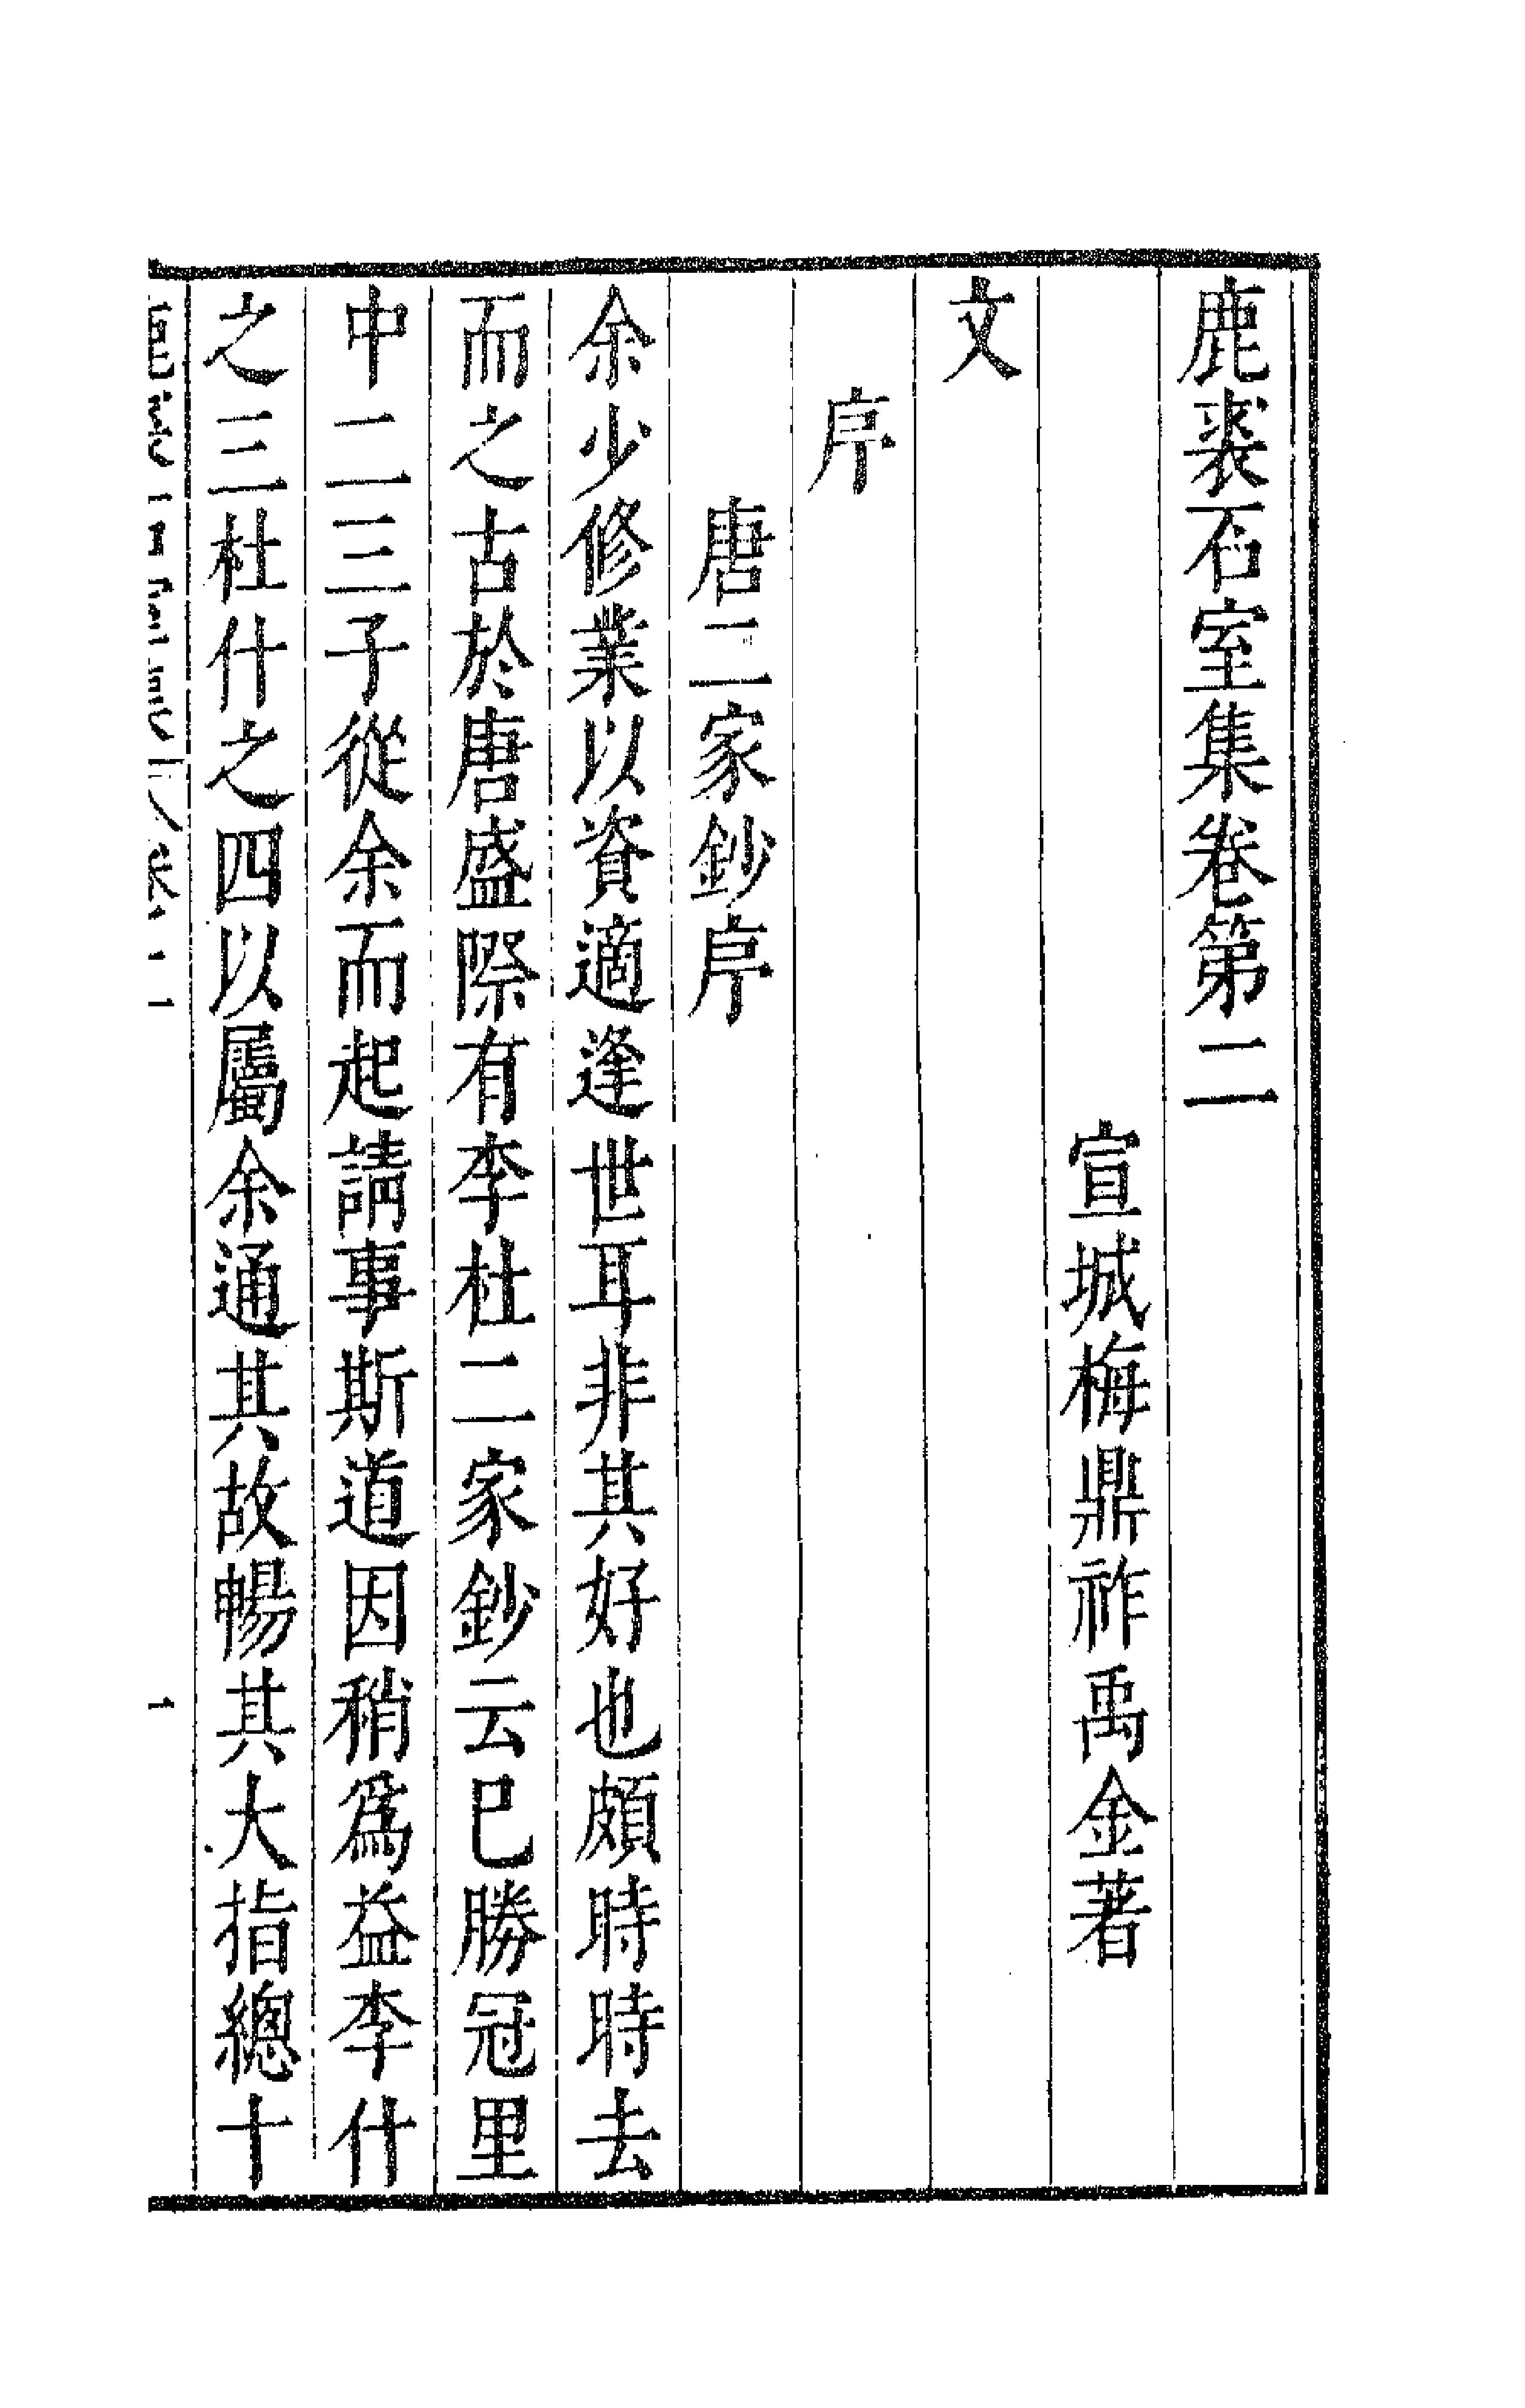 鹿裘石室集卷第二
宣城梅鼎祚禹金著
文
序
唐二家鈔序
余少修業以資適逢世耳非其好也頗時時去
而之古於唐盛際有李杜二家鈔云已勝冠里
中二三子從余而起請事斯道因稍爲益李什
之三杜什之四以屬余通其故暢其大指總十